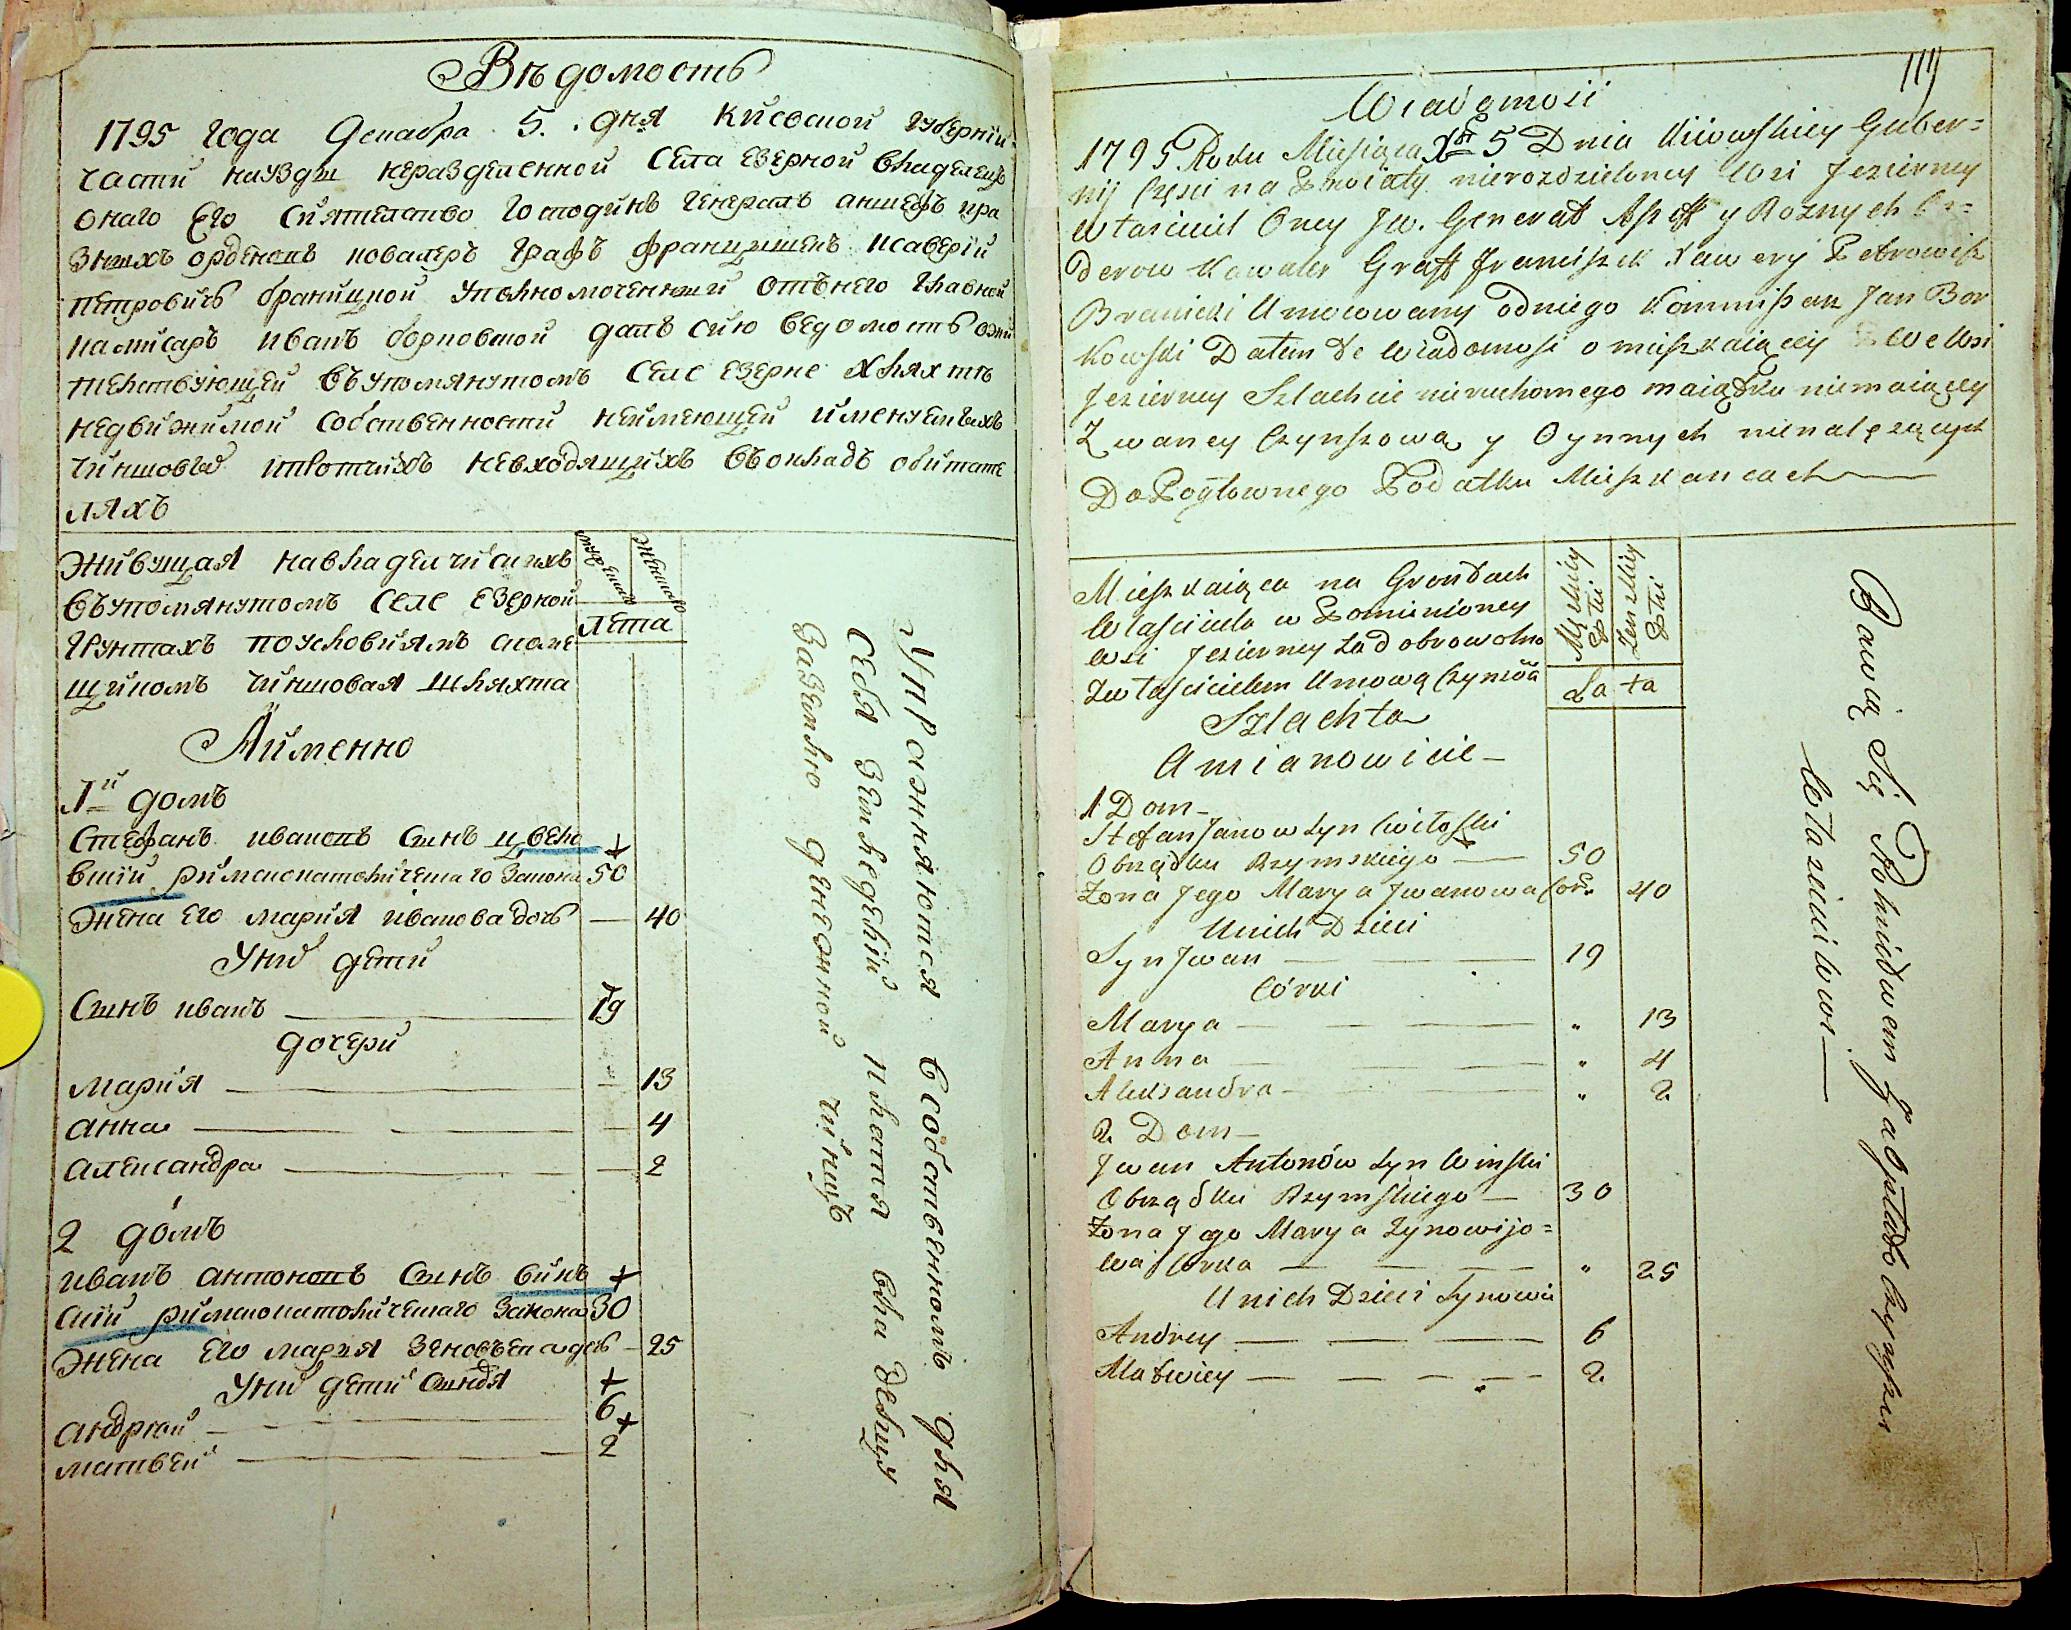 Вѣдомость
1795 года Декабра 5. дня Киевской губернїи
части науэзди неразделенной Села Езерной владелецъ
онаго Его Сиятелство Господинъ Генералъ аншефъ и ра
знихъ орденовъ ковалеръ Графъ францишекъ Ксаверїй
петровичъ браницкой уполномоченний отънего Главной
камисаръ иванъ борковской далъ сию ведомость о жи
тельствующей въупомянутомъ селе Езерне
недвижимой собственности неимеющей именуемыхъ
чиншовъ невходящихъ въокладъ обитате
ляхъ
Живущая на владелческихъ
въупомянутомъ селе Езерной
грунтахъ поусловиямъ споме
щикомъ чиншовая шляхта
мужеска
женска
лета
Аименно
1й домъ
Стефанъ ивановъ синъ цвело
вский римскокатоличешаго закона 50
жена его мария иванова дочь — 40
Уних дети
Синъ иванъ — 19
дочери
мария — 13
анна — 4
александра — 2
2 домъ
иванъ антоновъ синъ винъ
ский римскокатоличешаго закона 30
жена его мария зеновъева дочь — 25
Уних дети синовя
андрей — 6
матвей — 2
Упражняются всобственномъ для
себя земледелии платя владелцу
заземлю денежной чиншъ
119
Wiadomosci
1795 Roku Miesiąca Xbr 5 Dnia Kiiowskiey Guber=
nij Części na Powiaty nierozdzieloney Wsi Jezierney
własciciel Oney Jw. Generał Apeff y Roznych Or=
derow Kawaler Graff Franciszek Xawery Petrowicz
Branicki Umocowany odniego Kommisarz Jan Bor
kowski Datem te Wiadomosc o mieszkaiącey we Wsi
Jezierney Szlachcie nieruchomego maiątku niemaiącey
Zwaney Czynszową y Oynnych nienależących
Do Pogłownego Podatku Mieszkancach
Mieszkaiąca na Grontach
Własciciela w Pomienioney
Wsi Jezierney za dobrowolną
zwłascicielem Umową Czynszowa
Męskiey Płci
Zenskiey Płci
Lata
Szlachta
Amianowicie —
1 Dom —
Stefan Janow Syn Cwiłoski
Obrządku Rzymskiego — 50
Zona Jego Marya Jwanowa Cor: 40
Unich Dzieci
Syn Jwan — 19
Córki
Marya — " 13
Anna — " 4
Aleksandra — " 2
2 Dom —
Jwan Antonów Syn Winski
Obrządku Rzymskiego — 30
Zona Jego Marya Zynowijo=
wa Corka — " 25
Unich Dzieci Synowie
Andrey — 6
Matwiey — 2
Bawią Się Rolnidwem Zaopłatą Czynszu
Własciciwowi —